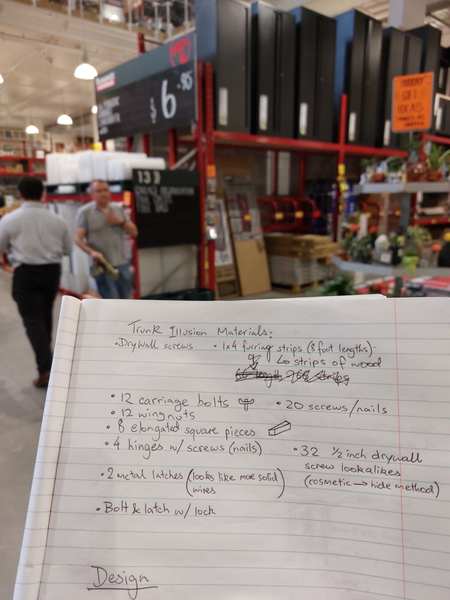 $6.95
13
Trunk Illusion Materials:
• Drywall screws • 1x4 furring strips (8 foot lengths)
↳ strips of wood
• 12 carriage bolts • 20 screws/nails
• 12 wingnuts
• 8 elongated square pieces
• 4 hinges w/ screws (nails) • 32 1/2 inch drywall
screw lookalikes
• 2 metal latches (looks like more solid (cosmetic → hide method)
wires)
• Bolt & latch w/ lock
Design